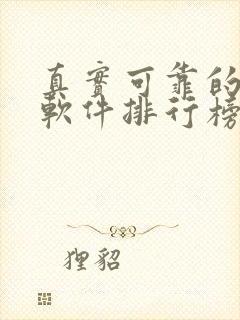 真實可靠的
軟件排行榜
狸貓